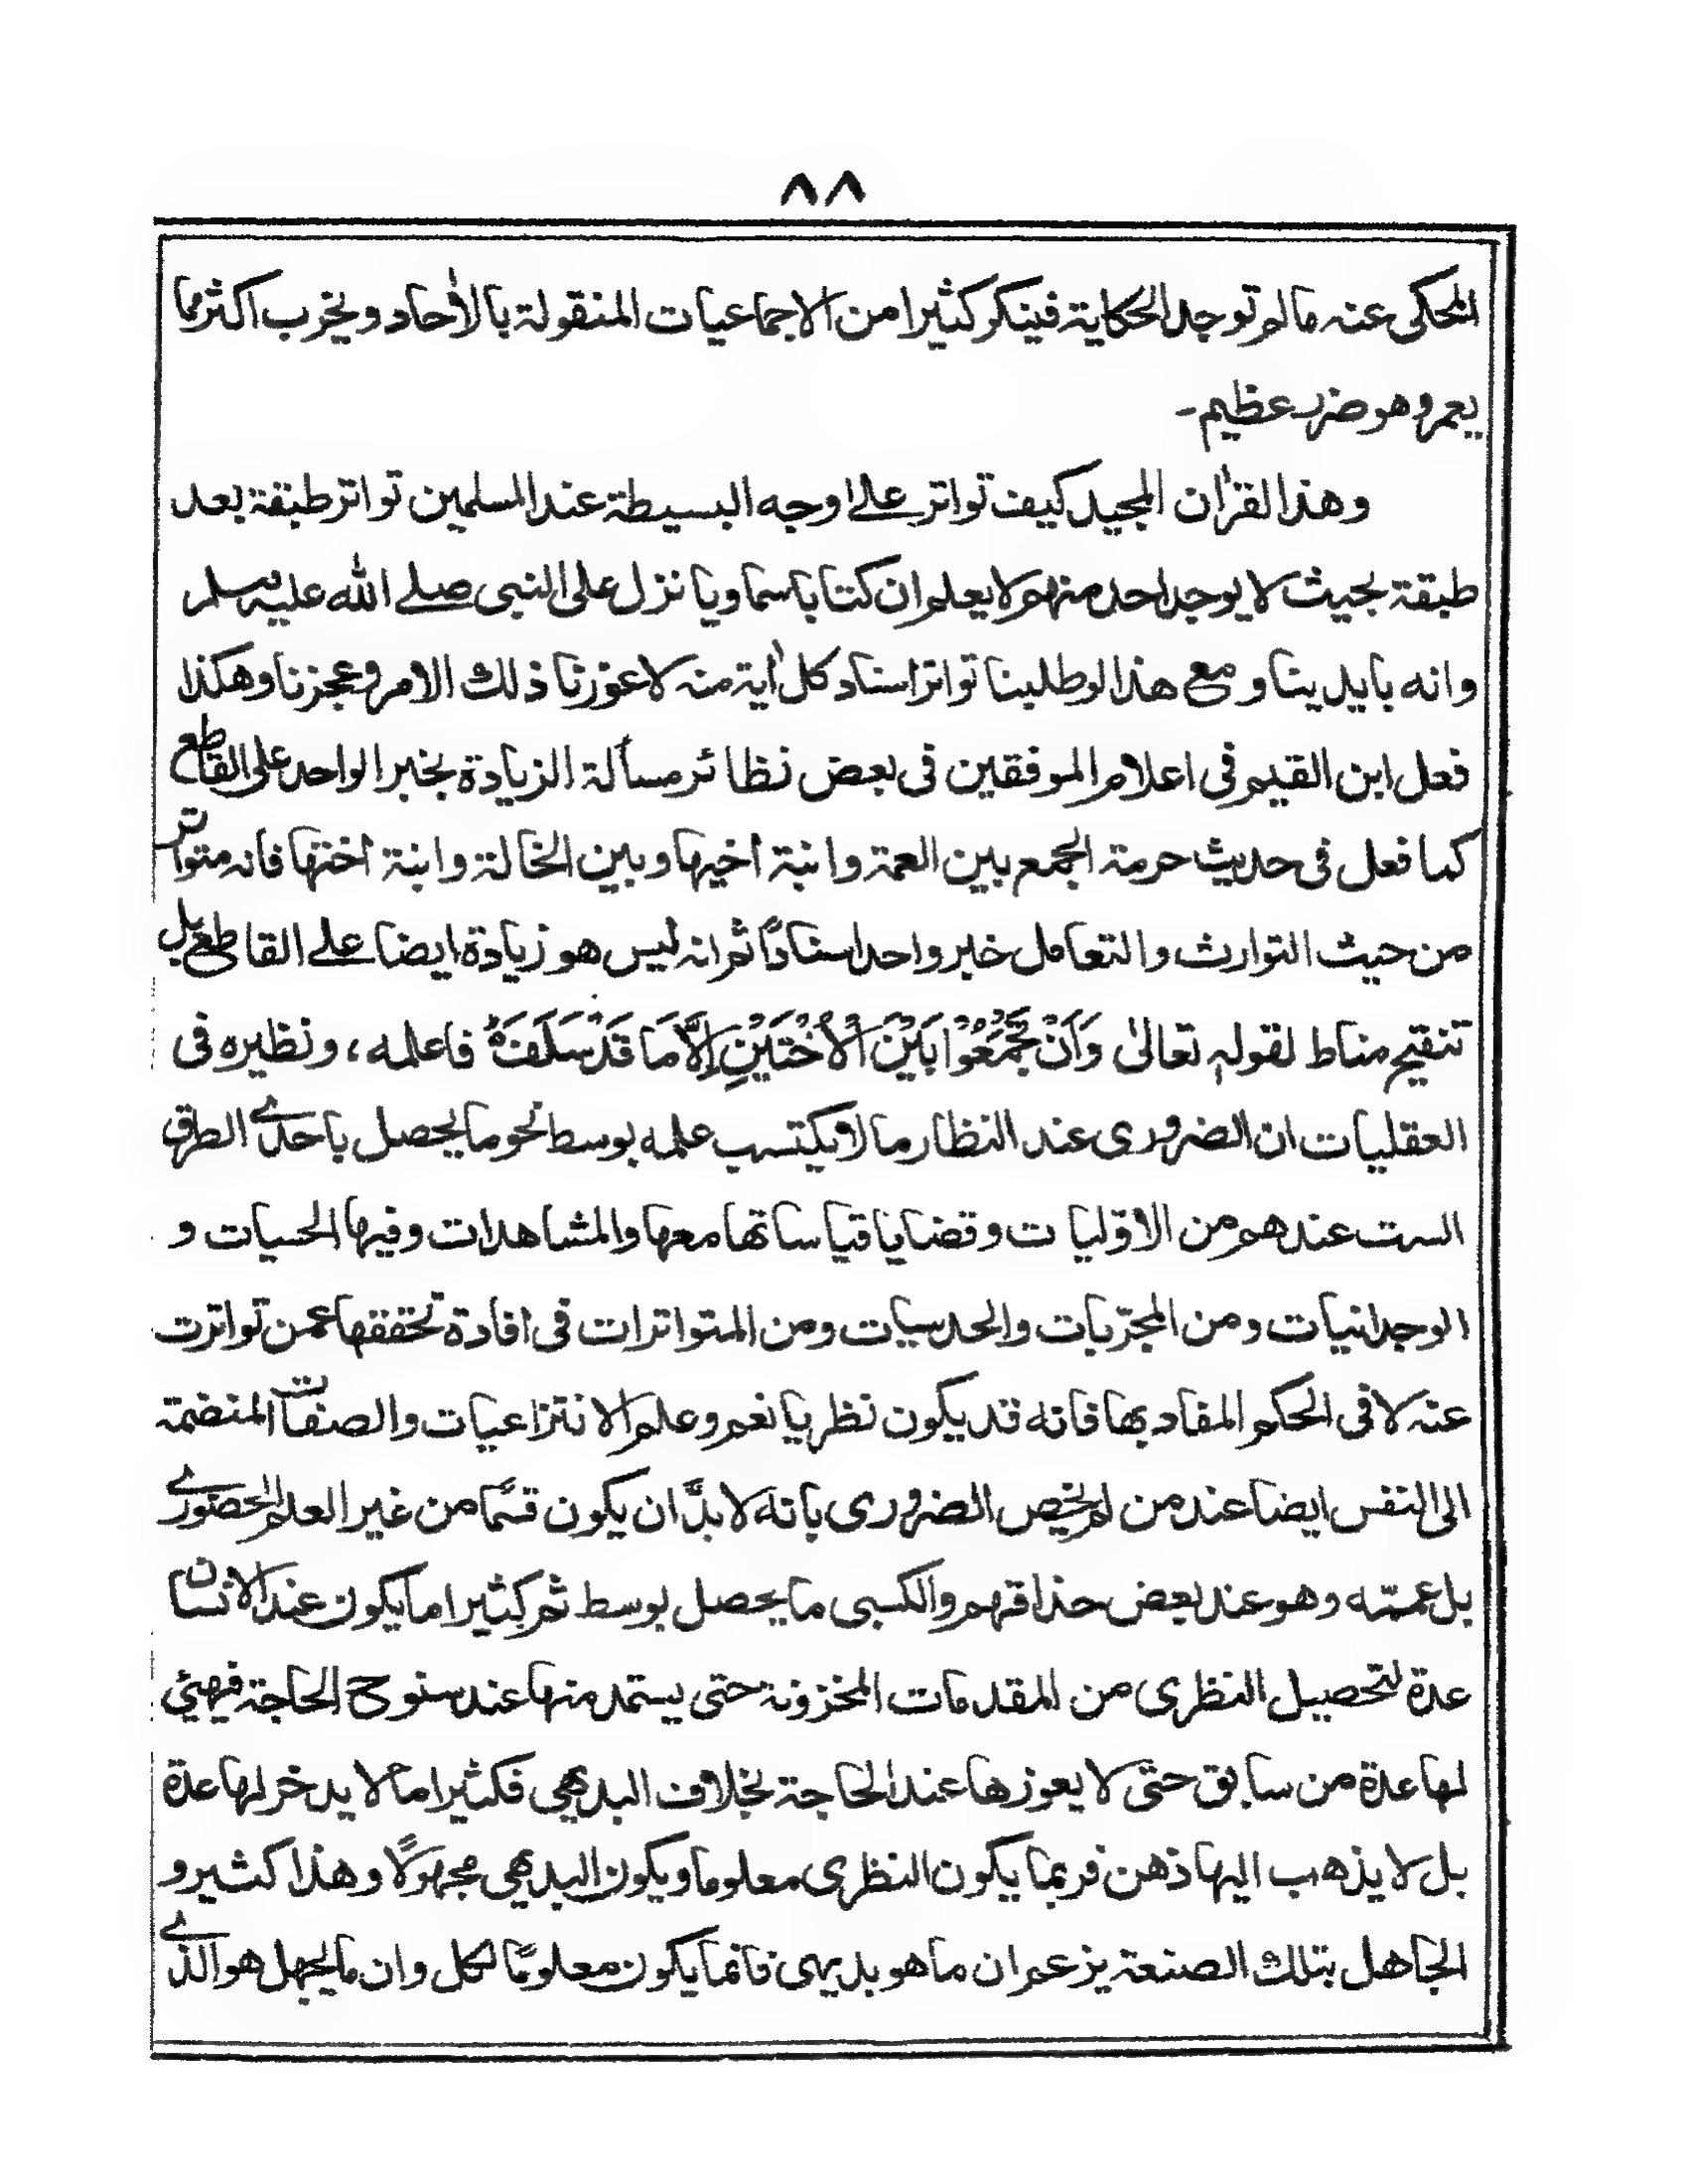 ٨٨
المحكى عنه مالم توجد الحكاية فينكر كثيرا من الاجماعيات المنقولة بالاٰحاد ويخرب اكثر مما
يعمر وهو ضرر عظيم۔
وهذا القراٰن المجيد كيف تواتر علے اوجه البسيطة عند المسلمين تواتر طبقة بعد
طبقة بحيث لا يوجد احد منهم لا يعلم ان كتابا سماويا نزل على النبى صلے الله عليه وسلم
وانه بايدينا ومع هذا لو طلبنا تواتر اسناد كل اٰية منه لاعوزنا ذلك الامر وعجزنا وهكذا
فعل ابن القيم فى اعلام الموفقين فى بعض نظائر مسألة الزيادة بخبر الواحد على القاطع
كما فعل فى حديث حرمة الجمع بين العمة وابنة اخيها وبين الخالة وابنة اختها فانه متواتر
من حيث التوارث والتعامل خبر واحد اسنادًا ثم انه ليس هو زيادة ايضا علے القاطع بل
تنقيح مناط لقوله تعالىٰ وَاَنْ تَجْمَعُوْا بَيْنَ الْاُخْتَيْنِ اِلَّا مَا قَدْ سَلَفَ فاعلمه ، ونظيره فى
العقليات ان الضرورى عند النظار مالا يكتسب علمه بوسط نحو ما يحصل باحدے الطرق
الست عندهم من الاوّليات وقضايا قياساتها معها والمشاهدات وفيها الحسيات و
الوجدانيات ومن المجرّبات والحدسيات ومن المتواترات فى افادة تحققها عمن تواترت
عنه لا فى الحكم المفاد بها فانه قد يكون نظريا نعم وعلم الانتزاعيات والصفات المنضمة
الى النفس ايضا عند من لم يخص الضرورى بانه لا بدَّ ان يكون قسمًا من غير العلم الحضورے
بل عمّمه وهو عند بعض حذاقهم والكسبى ما يحصل بوسط ثم كثيرا ما يكون عند الانسان
عدة لتحصيل النظرى من المقدمات المخزونة حتى يستمد منها عند سنوح الحاجة فيهيئ
لها عدة من سابق حتى لا يعوزها عند الحاجة بخلاف البديهى فكثيرا ما لا يدخر لها عدة
بل لا يذهب اليها ذهن فربما يكون النظرى معلوما ويكون البديهى مجهولًا وهذا كثير و
الجاهل بتلك الصنعة يزعم ان ما هو بديهى فانما يكون معلومًا لكل وان ما يجهل هو الذے